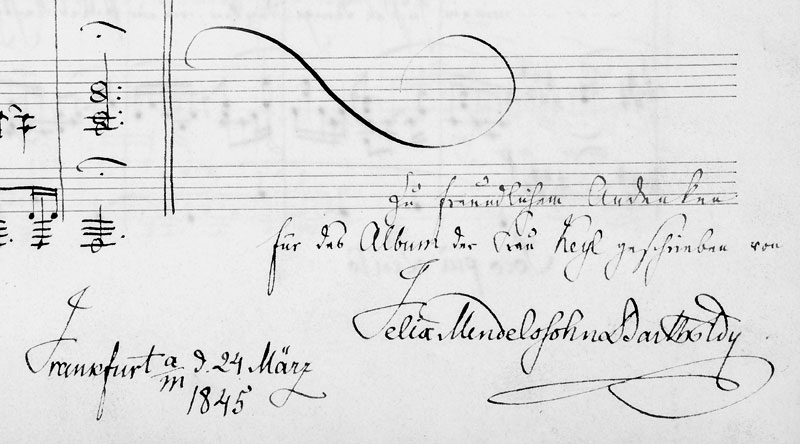 Zu freundlichem Andenken
für das Album der Frau Keyl geschrieben von
Felix Mendelssohn Bartholdy
Frankfurt a/m d. 24 März
1845